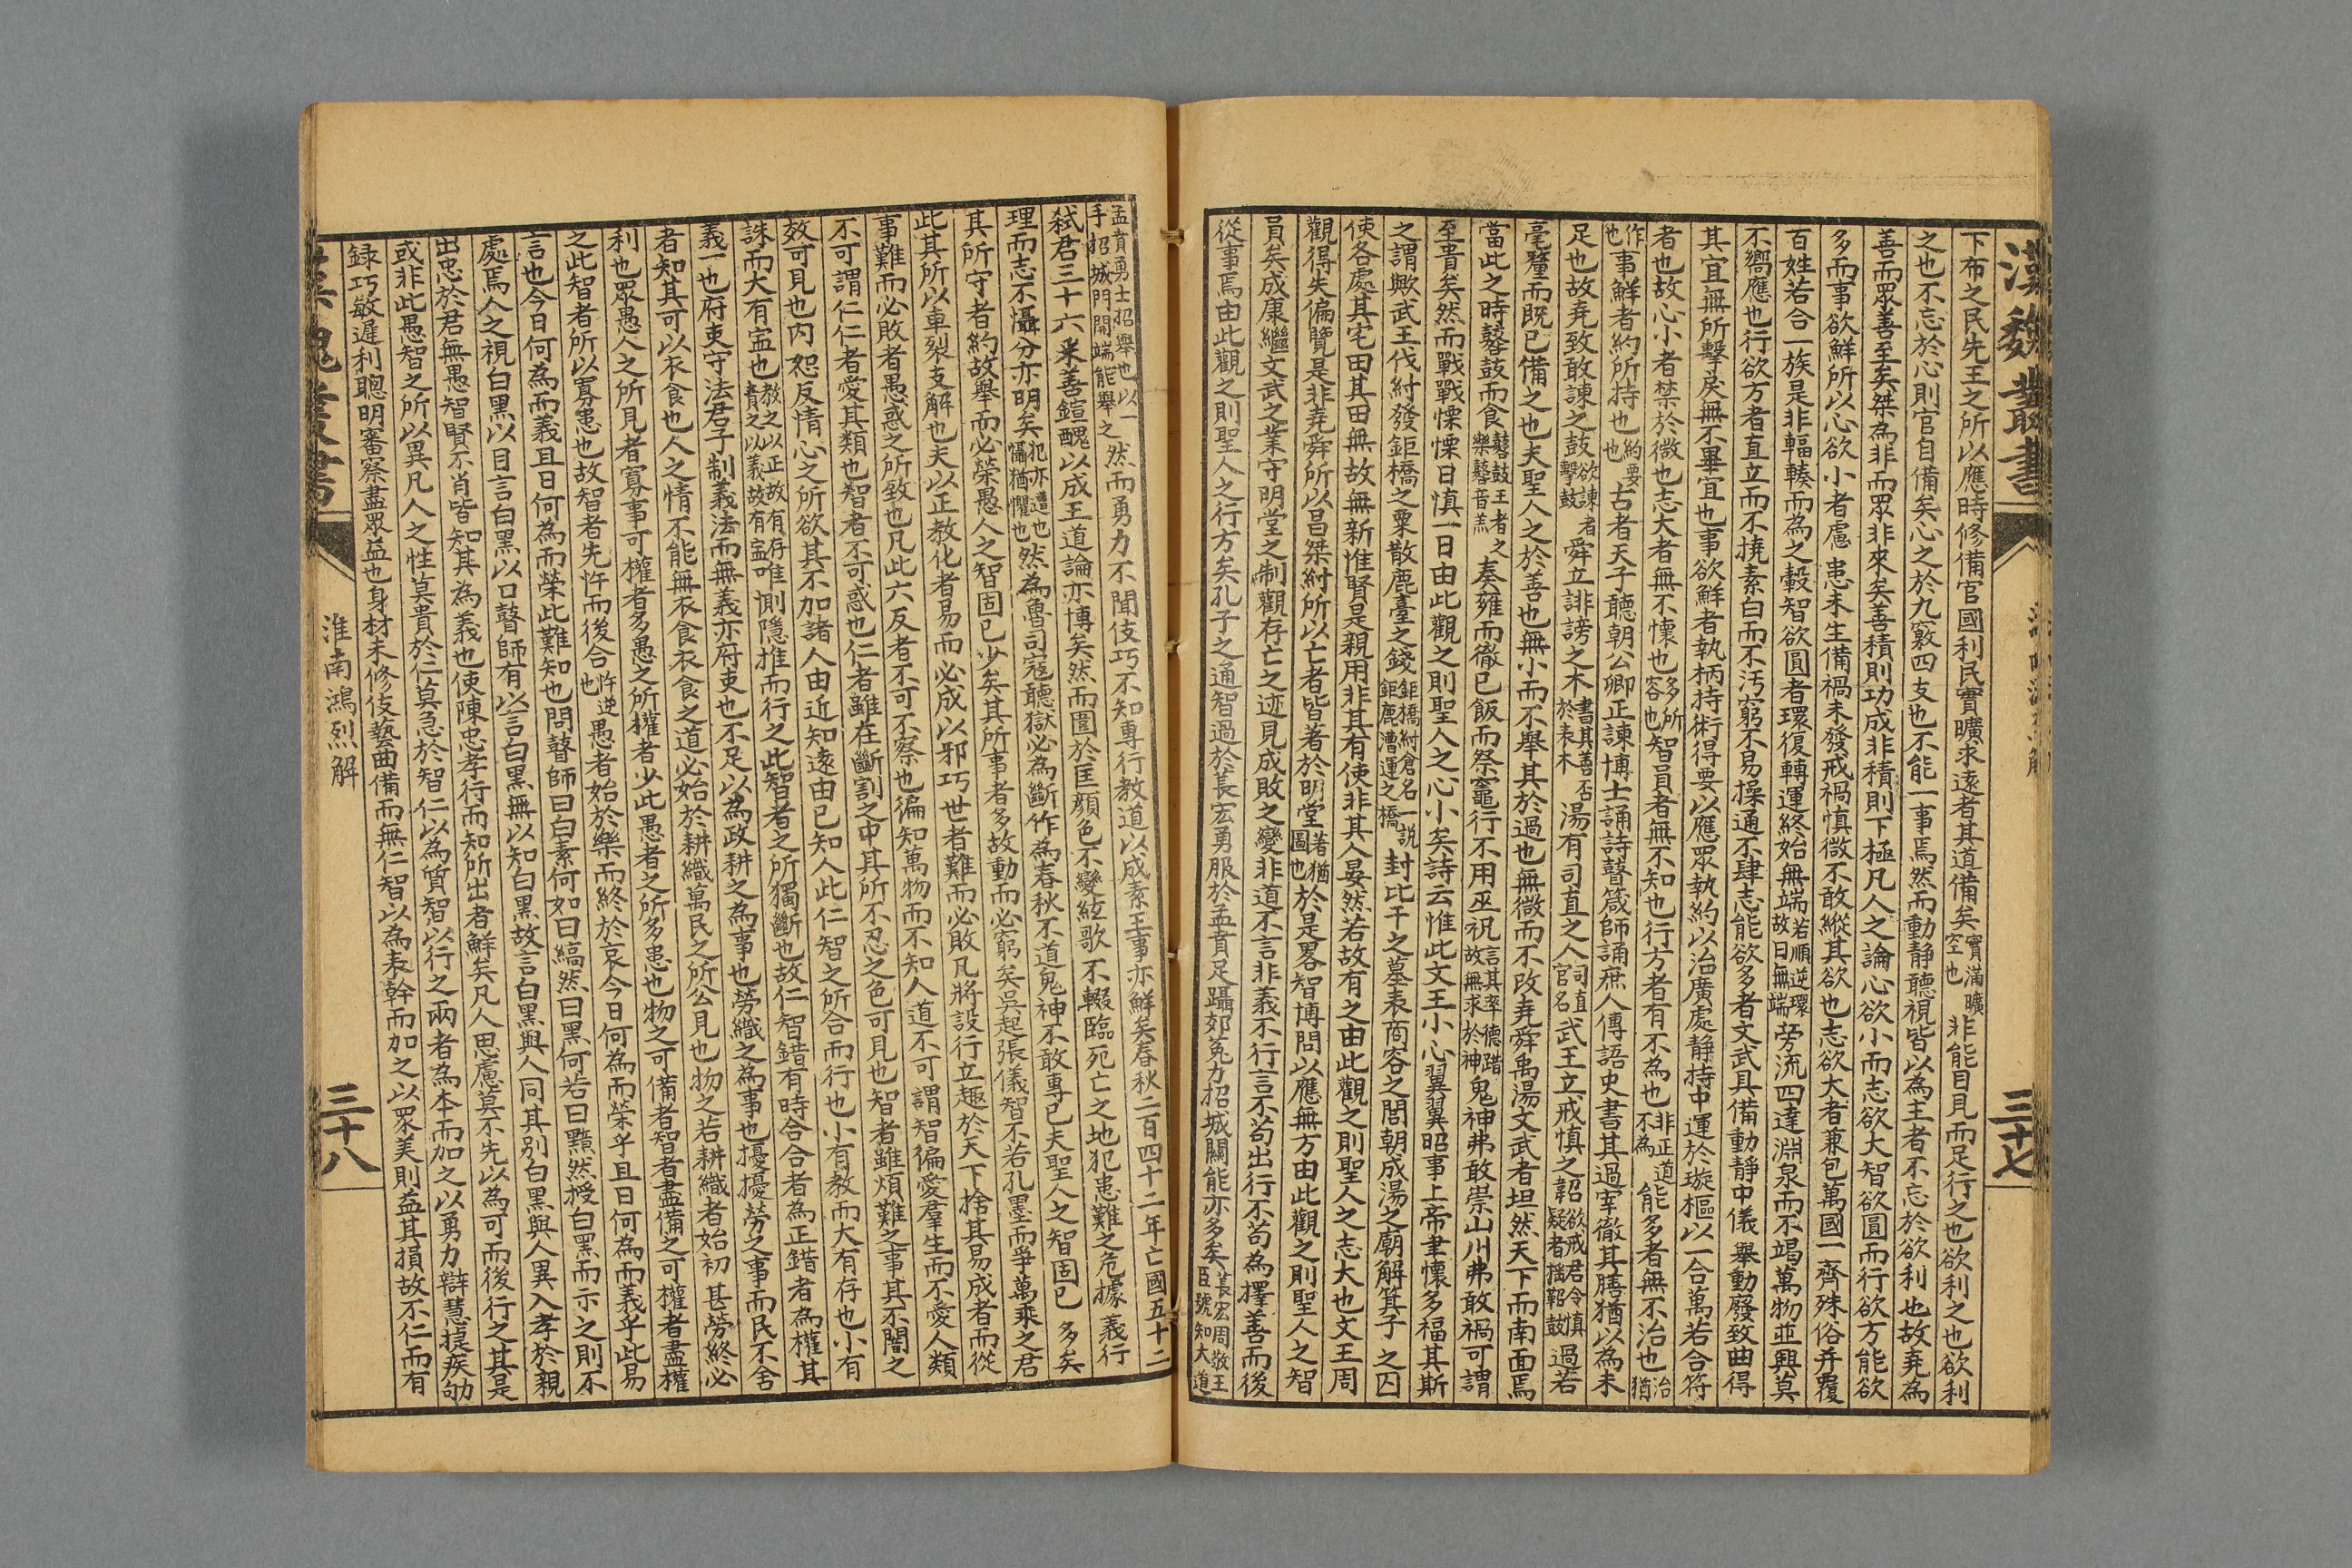 漢魏叢書
三十七
下布之民先王之所以應時修備官國利民實曠來遠者其道備矣實滿曠空也非能目見而足行之也欲利之也欲利
之也不忘於心則官自備矣心之於九竅四支也不能一事焉然而動靜聽視皆以為主者不忘於欲利也故堯為
善而眾善至矣桀為非而眾非來矣善積則功成非積則下極凡人之論心欲小而志欲大智欲圓而行欲方能欲
多而事欲鮮所以心欲小者慮患未生備禍未發戒禍慎微不敢縱其欲也志欲大者兼包萬國一齊殊俗并覆
百姓若合一族是非輻輳而為之轂智欲圓者環復轉運終始無端若順逆環故曰無端旁流四達淵泉而不竭萬物並興莫
不嚮應也行欲方者直立而不撓素白而不汚窮不易操通不肆志能欲多者文武具備動靜中儀舉動廢致曲得
其宜無所擊戾無不畢宜也事欲鮮者執柄持術得要以應眾執約以治廣處靜持中運於璇樞以一合萬若合符
者也故心小者禁於微也志大者無不懷也多所容也智員者無不知也行方者有不為也非正道不為能多者無不治也治猶
作也事鮮者約所持也約要也古者天子聽朝公卿正諫博士誦詩瞽箴師誦庶人傳語史書其過宰徹其膳猶以為未
足也故堯致敢諫之鼓欲諫者擊鼓舜立誹謗之木書其善否於表木湯有司直之人司直官名武王立戒慎之鞀欲戒君令慎疑者搖鞀鼓過若
毫釐而既已備之也夫聖人之於善也無小而不舉其於過也無微而不改堯舜禹湯文武者坦然天下而南面焉
當此之時鼛鼓而食鼛鼓王者之樂鼛音羔奏雍而徹已飯而祭竈行不用巫祝言其率德蹈故無求於神鬼神弗敢祟山川弗敢禍可謂
至貴矣然而戰戰慄慄日慎一日由此觀之則聖人之心小矣詩云惟此文王小心翼翼昭事上帝聿懷多福其斯
之謂歟武王伐紂發鉅橋之粟散鹿臺之錢鉅橋紂倉名一說鉅鹿漕運之橋封比干之墓表商容之閭朝成湯之廟解箕子之囚
使各處其宅田其田無故無新惟賢是親用非其有使非其人晏然若故有之由此觀之則聖人之志大也文王周
觀得失徧覽是非堯舜所以昌桀紂所以亡者皆著於明堂著猶圖也於是畧智博問以應無方由此觀之則聖人之智
員矣成康繼文武之業守明堂之制觀存亡之迹見成敗之變非道不言非義不行言不苟出行不苟為擇善而後
從事焉由此觀之則聖人之行方矣孔子之通智過於萇宏勇服於孟賁足躡郊菟力招城關能亦多矣萇宏周敬王臣號知大道
孟賁勇士招舉也以一手招城門開端能舉之然而勇力不聞伎巧不知專行教道以成素王事亦鮮矣春秋二百四十二年亡國五十二
弒君三十六采善鉏醜以成王道論亦博矣然而圍於匡顏色不變絃歌不輟臨死亡之地犯患難之危據義行
理而志不懾分亦明矣犯亦遭也懾猶懼也然為魯司寇聽獄必為斷作為春秋不道鬼神不敢專己夫聖人之智固已多矣
其所守者約故舉而必榮愚人之智固已少矣其所事者多故動而必窮矣吳起張儀智不若孔墨而爭萬乘之君
此其所以車裂支解也夫以正教化者易而必成以邪巧世者難而必敗凡將設行立趣於天下捨其易成者而從
事難而必敗者愚惑之所致也凡此六反者不可不察也徧知萬物而不知人道不可謂智徧愛羣生而不愛人類
不可謂仁仁者愛其類也智者不可惑也仁者雖在斷割之中其所不忍之色可見也智者雖煩難之事其不闇之
效可見也內恕反情心之所欲其不加諸人由近知遠由己知人此仁智之所合而行也小有教而大有存也小有
誅而大有寍也教之以正故有存責之以義故有寍唯惻隱推而行之此智者之所獨斷也故仁智錯有時合合者為正錯者為權其
義一也府吏守法君子制義法而無義亦府吏也不足以為政耕之為事也勞織之為事也擾擾勞之事而民不舍
者知其可以衣食也人之情不能無衣食衣食之道必始於耕織萬民之所公見也物之若耕織者始初甚勞終必
利也眾愚人之所見者寡事可權者多愚之所權者少此愚者之所多患也物之可備者智者盡備之可權者盡權
之此智者所以寡患也故智者先忤而後合忤逆也愚者始於樂而終於哀今日何為而榮乎旦日何為而義乎此易
言也今日何為而義旦日何為而榮此難知也問瞽師曰白素何如曰縞然曰黑何若曰黮然援白黑而示之則不
處焉人之視白黑以目言白黑以口瞽師有以言白黑無以知白黑故言白黑與人同其別白黑與人異入孝於親
出忠於君無愚智賢不肖皆知其為義也使陳忠孝行而知所出者鮮矣凡人思慮莫不先以為可而後行之其是
或非此愚智之所以異凡人之性莫貴於仁莫急於智仁以為質智以行之兩者為本而加之以勇力辯慧捷疾劬
錄巧敏遲利聰明審察盡眾益也身材未修伎藝曲備而無仁智以為表幹而加之以眾美則益其損故不仁而有
淮南鴻烈解
三十八